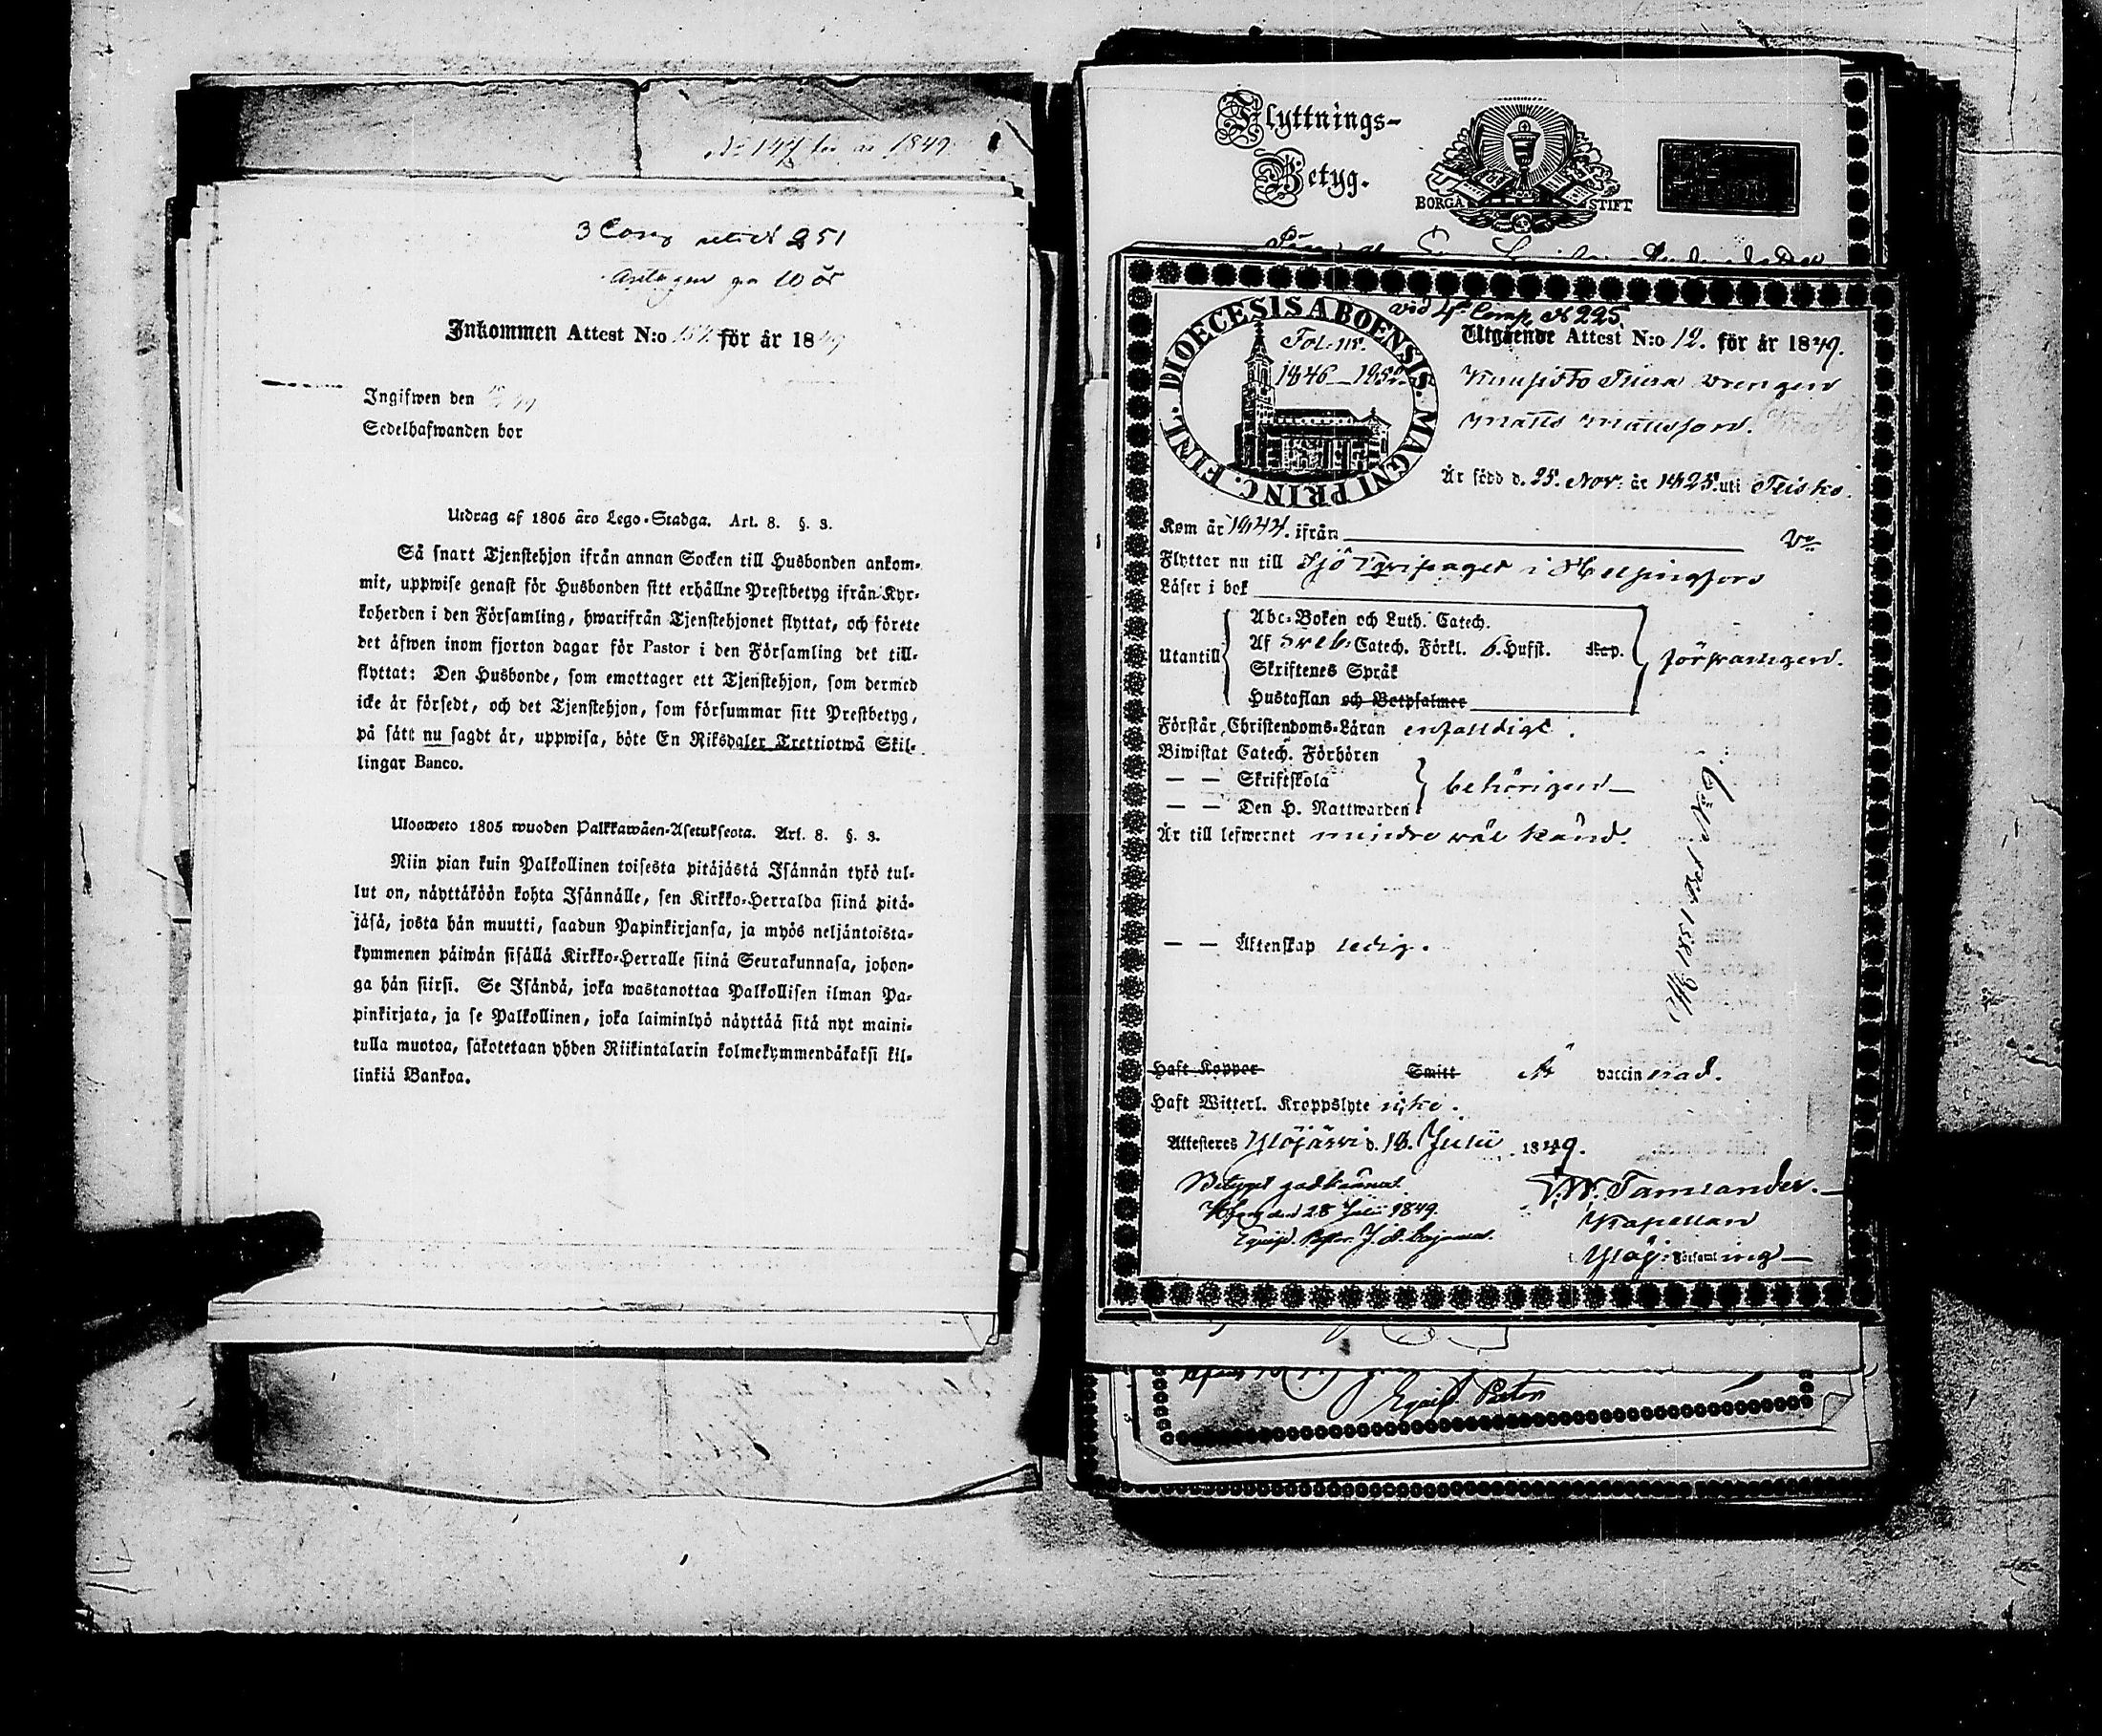 No 147 för år 1849.
3 Comp 251
Antagen på 10 år
Inkommen Attest N:o för år 1849
Ingifwen den
Sedelhafwanden bor
Utdrag af 1805 års Lego-Stadga. Art. 8. §. 3.
Så snart Tjenstehjon ifrån annan Socken till Husbonden ankom-
mit, uppwise genast för Husbonden sitt erhållne Prestbetyg ifrån Kyr-
koherden i den Församling, hwarifrån Tjenstehjonet flyttat, och förete
det äfwen inom fjorton dagar för Pastor i den Församling det till-
flyttat: Den Husbonde, som emottager ett Tjenstehjon, som dermed
icke är försedt, och det Tjenstehjon, som försummar sitt Prestbetyg,
på sätt nu sagdt är, uppwisa, böte En Riksdaler Trettiotwå Skil-
lingar Banco.
Ulosweto 1805 wuoden Palkkawäen-Asetuksesta. Art. 8. §. 3.
Niin pian kuin Palkollinen toisesta pitäjästä Isännän tykö tul-
lut on, näyttäköön kohta Isännälle, sen Kirkko-Herralda siinä pitä-
jäsä, josta hän muutti, saadun Papinkirjansa, ja myös neljäntoista-
kymmenen päiwän sisällä Kirkko-Herralle siinä Seurakunnasa, johon-
ga hän siirsi. Se Isändä, joka wastanottaa Palkollisen ilman Pa-
pinkirjata, ja se Palkollinen, joka laiminlyö näyttää sitä nyt maini-
tulla muotoa, sakotetaan yhden Riikintalarin kolmekymmendäkaksi kil-
linkiä Bankoa.
Flyttnings-
Betyg.
BORGÅ STIFT
DIOECESIS ABOENSIS. MAGNI PRINC. FINL.
vid 4de Comp. N 225
Utgående Attest N:o 12. för år 1849.
1846-1852.
drengen
Matts Mattsson.
Är född d. 25. Nov. år 1825. uti Teisko.
Kom år 1844. ifrån
Flyttar nu till Sjö Equipaget i Helsingfors
Läser i bok
Utantill
Abc-Boken och Luth. Catech.
Af Sveb. Catech. Förkl. 6. Hufst. Kap.
Skriftenes Språk
Hustaflan och Botpsalmer
försvarligen.
Förstår Christendoms-Läran enfaldigt.
Biwistat Catech. Förhören
— — Skriftskola
— — Den H. Nattwarden
behörigen —
Är till lefwernet mindre väl känd.
— — Äktenskap ledig.
Haft Koppor Smitt Är vaccinerad.
Haft Witterl. Kroppslyte icke.
Attesteres Ylöjärvi d. 18. Julii 1849.
Betyget godkännes.
H:fors den 28 Julii 1849.
Equip. Pastor
Kapellan
Ylöj. Församling —
Equip. Pastor